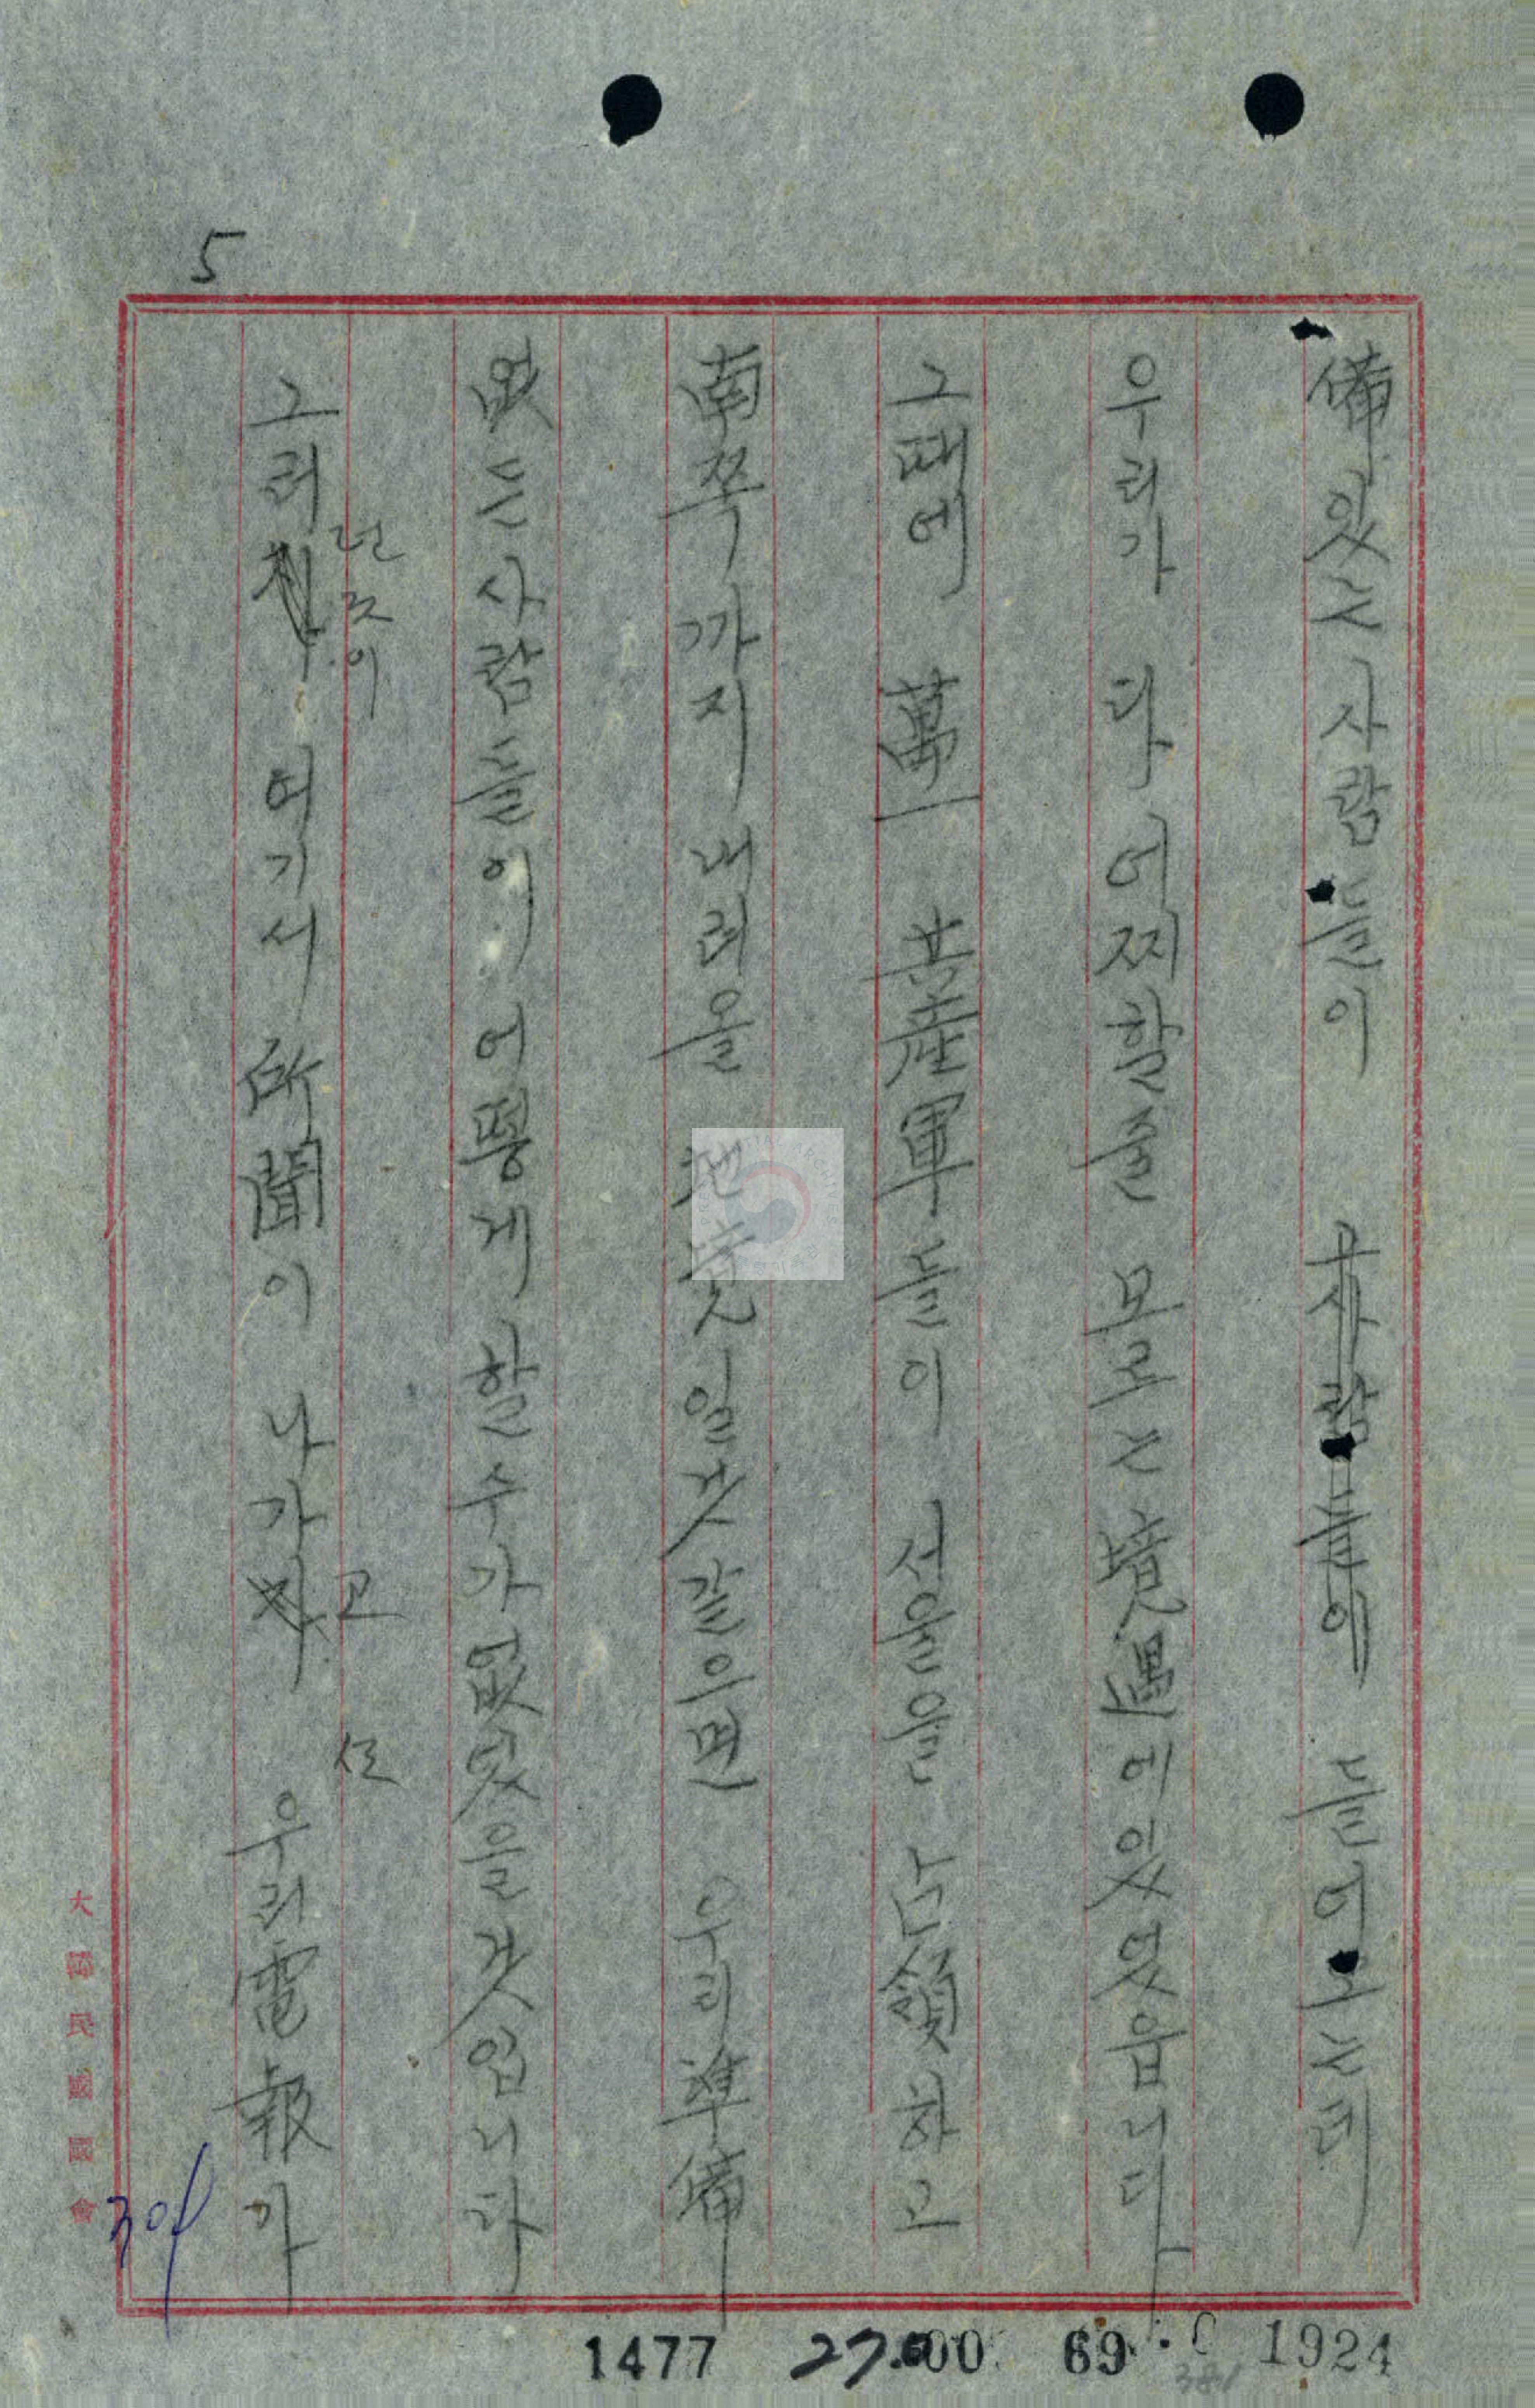 5
備있는 사람들이 그사람들이 들어오는데
우리가 다 어찌할줄 모르는 境遇에 있었읍니다
그때에 萬一 共産軍들이 서울을 占領하고
南쪽까지 내려올 것 일것 같으면 우리 準備
없는 사람들이 어떻게 할 수가 없었을 것입니다
그러 던것이 여기서 所聞이 나가고 우리 電報가
大韓民國國會
304
1477 27.00 69 1924